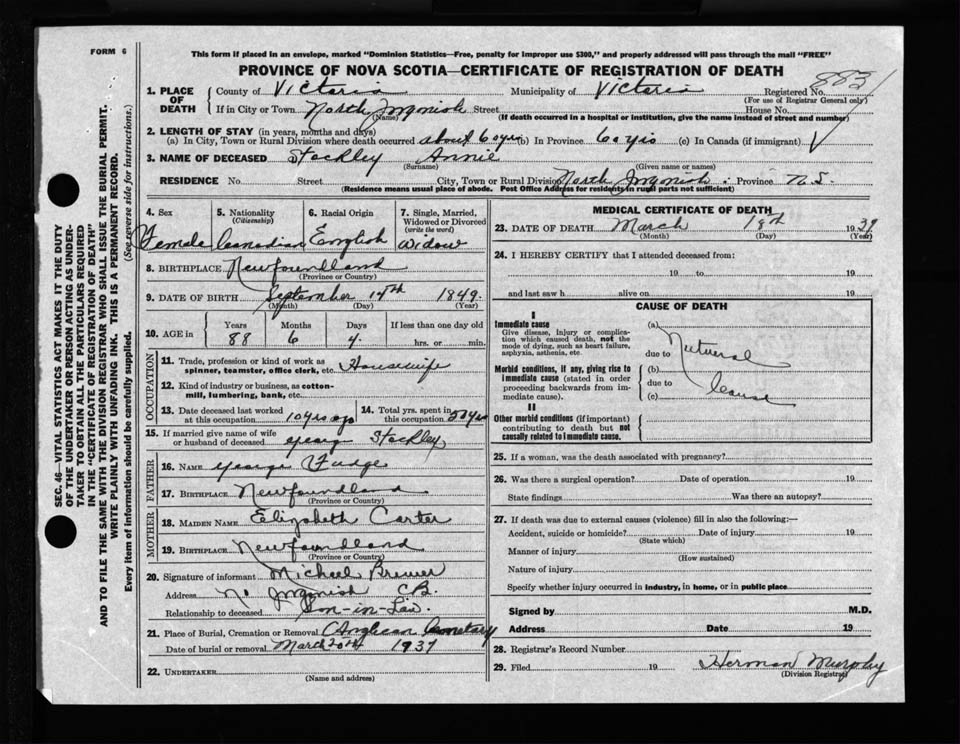 FORM 6
This form if placed in an envelope, marked "Dominion Statistics—Free, penalty for improper use $300," and properly addressed will pass through the mail "FREE"
PROVINCE OF NOVA SCOTIA—CERTIFICATE OF REGISTRATION OF DEATH
883
1. PLACE OF DEATH
County of Victoria Municipality of Victoria Registered No.
(For use of Registrar General only)
If in City or Town North Ingonish Street House No.
(Name) (If death occurred in a hospital or institution, give name instead of street and number)
2. LENGTH OF STAY (in years, months and days)
(a) In City, Town or Rural Division where death occurred about 60 yrs (b) In Province 60 yrs (c) In Canada (if immigrant)
3. NAME OF DECEASED Stockley Annie
(Surname) (Given name or names)
RESIDENCE No. Street City, Town or Rural Division North Ingonish Province N.S.
(Residence means usual place of abode. Post Office Address for residents in rural parts not sufficient)
4. Sex Female
5. Nationality (Citizenship) Canadian
6. Racial Origin English
7. Single, Married, Widowed or Divorced (write the word) Widow
8. BIRTHPLACE Newfoundland
(Province or Country)
9. DATE OF BIRTH September 14th 1849.
(Month) (Day) (Year)
10. AGE in Years Months Days If less than one day old
88 6 4. hrs. or min.
OCCUPATION
11. Trade, profession or kind of work as spinner, teamster, office clerk, etc. Housewife
12. Kind of industry or business, as cotton-mill, lumbering, bank, etc.
13. Date deceased last worked at this occupation 10 yrs ago
14. Total yrs. spent in this occupation 50 yrs
15. If married give name of wife or husband of deceased George Stockley
FATHER
16. NAME George Fudge
17. BIRTHPLACE Newfoundland
(Province or Country)
MOTHER
18. MAIDEN NAME Elizabeth Carter
19. BIRTHPLACE Newfoundland
(Province or Country)
20. Signature of informant Michael Brewer
Address No Ingonish CB.
Relationship to deceased Son-in-Law.
21. Place of Burial, Cremation or Removal Anglican Cemetary
Date of burial or removal March 20th 1937
22. UNDERTAKER
(Name and address)
MEDICAL CERTIFICATE OF DEATH
23. DATE OF DEATH March 18th 19
(Month) (Day) (Year)
24. I HEREBY CERTIFY that I attended deceased from:
19 to 19
and last saw h alive on 19
CAUSE OF DEATH
I
Immediate cause
Give disease, injury or complication which caused death, not the mode of dying, such as heart failure, asphyxia, asthenia, etc.
(a)
due to Nutural
Morbid conditions, if any, giving rise to immediate cause (stated in order proceeding backwards from immediate cause).
(b)
due to Cause
(c)
II
Other morbid conditions (if important) contributing to death but not causally related to immediate cause.
25. If a woman, was the death associated with pregnancy?
26. Was there a surgical operation? Date of operation 19
State findings Was there an autopsy?
27. If death was due to external causes (violence) fill in also the following:—
Accident, suicide or homicide? Date of injury 19
(State which)
Manner of injury
(How sustained)
Nature of injury
Specify whether injury occurred in industry, in home, or in public place
Signed by M.D.
Address Date 19
28. Registrar's Record Number
29. Filed 19 Herman Murphy
(Division Registrar)
SEC. 46—VITAL STATISTICS ACT MAKES IT THE DUTY
OF THE UNDERTAKER OR PERSON ACTING AS UNDER-
TAKER TO OBTAIN ALL THE PARTICULARS REQUIRED
IN THE "CERTIFICATE OF REGISTRATION OF DEATH"
AND TO FILE THE SAME WITH THE DIVISION REGISTRAR WHO SHALL ISSUE THE BURIAL PERMIT.
WRITE PLAINLY WITH UNFADING INK. THIS IS A PERMANENT RECORD.
Every item of information should be carefully supplied. (See reverse side for instructions.)